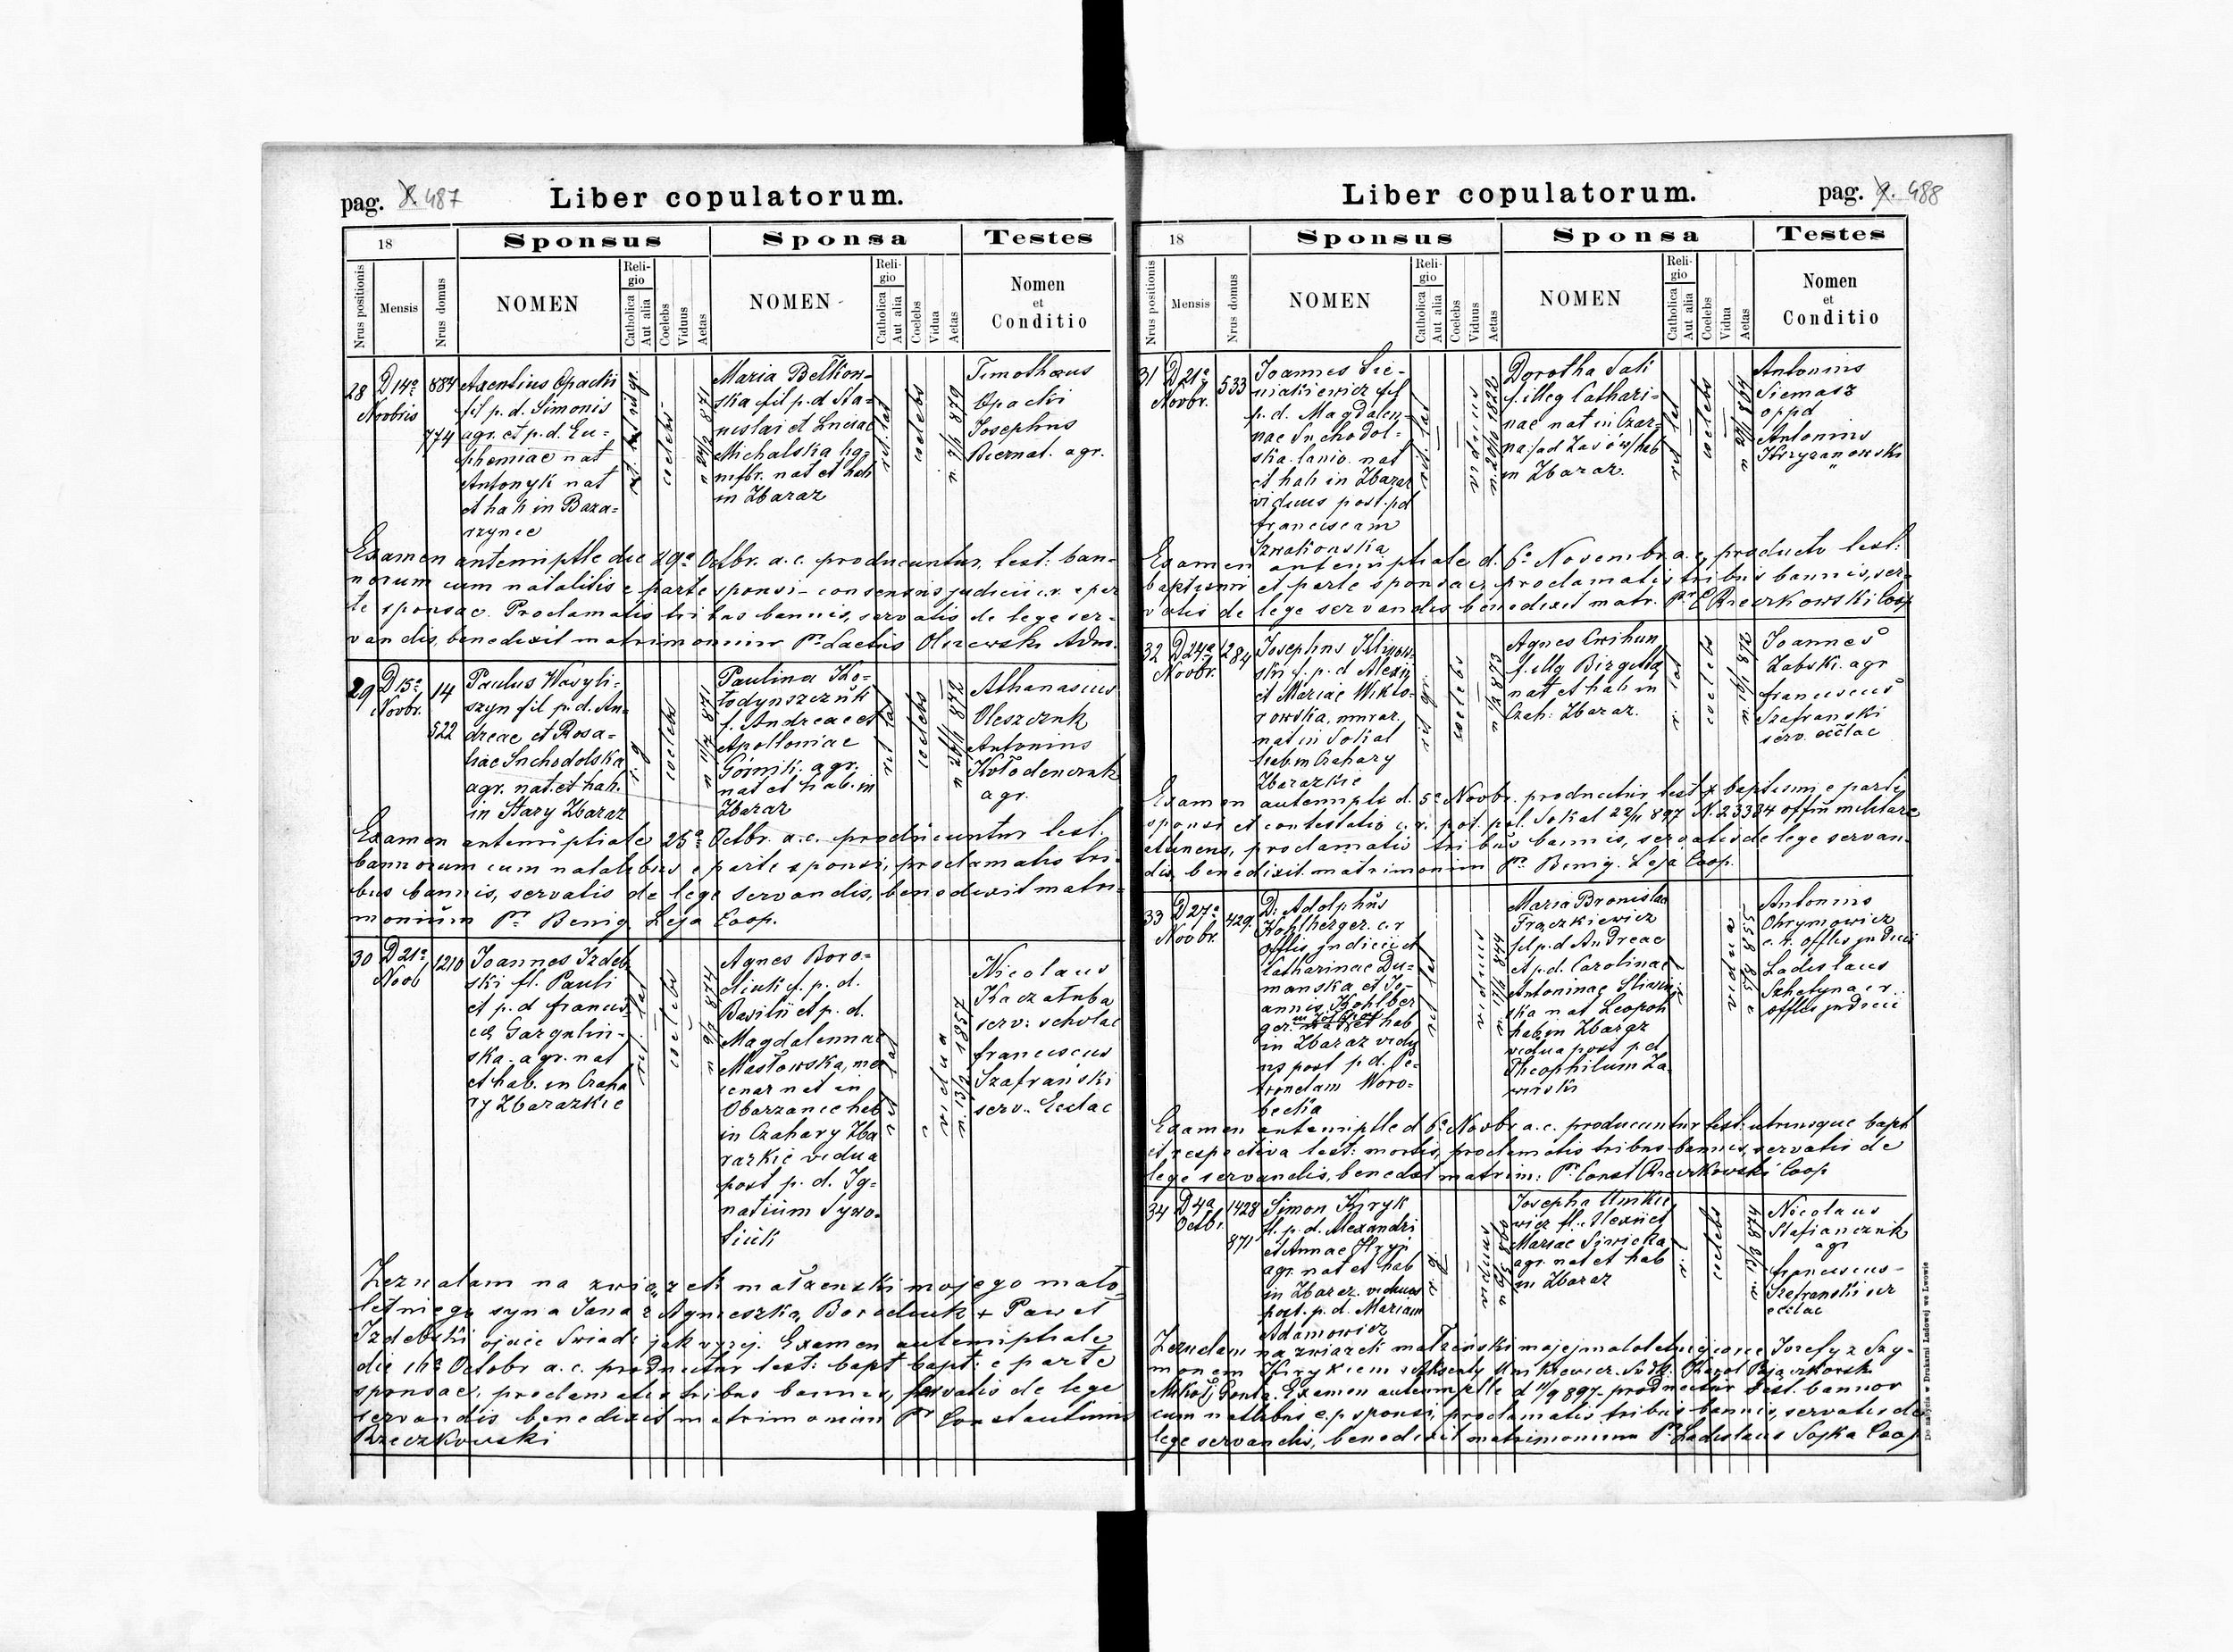 pag. 8. 487
Liber copulatorum.
18
Sponsus
Sponsa
Testes
Nrus positionis
Mensis
Nrus domus
NOMEN
Religio
Catholica
Aut alia
Coelebs
Viduus
Aetas
NOMEN
Religio
Catholica
Aut alia
Coelebs
Vidua
Aetas
Nomen
et
Conditio
28
D 14a
Novbris
884
774
Axentius Opacki
fil p. d. Simonis
agr. et p. d. Eu=
phemiae nat
Antonyk nat
et hab in Baza=
rzynce
coelebs
Maria Betkow=
ska fil p. d Sta=
nislai et Luciae
Michalska
nat et hab
in Zbaraz
rit. lat
coelebs
Timothaeus
Opacki
Josephus
Biernat. agr.
Examen antenuptle die 29a Octbr. a. c. producuntur, test: ban=
norum cum natalitis e parte sponsi - consensus judicii c. r. e par
te sponsae. Proclamatis tribus bannis, servatis de lege ser=
vandis, benedixit matrimonium Pr. Laetus Olszewski Adm.
29
D 15a
Novbr.
14
522
Paulus Wasyli=
szyn fil p. d. An=
dreae et Rosa=
liae Suchodolska
agr. nat. et hab.
in Stary Zbaraz
coelebs
Paulina Ko=
łodynszczuk
f. Andreae et
Apolloniae
Górnik. agr.
nat et hab. in
Zbaraz
coelebs
Athanasius
Oleszczuk
Antonius
Kołodenczuk
agr.
Examen antenuptiale 25a Octbr. a. c. producuntur test.
bannorum cum natalibus e parte sponsi, proclamatis tri=
bus bannis, servatis de lege servandis, benedixit matri=
monium Pr. Benig. Leja Coop.
30
D 21a
Novb
1210
Joannes Izdeb
ski fl. Pauli
et p. d francis
cae Gargulin=
ska. agr. nat
et hab. in Czaha
ry Zbarazkie
coelebs
Agnes Boro=
diuk f. p. d.
Basilii et p. d.
Magdalennae
Masłowska, mer
cenar nat in
Obarzance hab
in Czahary Zba
razkie vidua
post p. d. Ig=
natium Sywo=
kiuk
vidua
Nicolaus
Kaczałuba
serv: scholae
franciscus
Szafrański
serv. Ecclae
Zezwalam na związek małżenski mojego mało
letniego syna Jana z Agnieszką Borodiuk + Paweł
Izdebski ojciec Świad: jak wyżej. Examen antenuptiale
die 16a Octobr a. c. producitur test: bapt bapt: e parte
sponsae, proclamatis tribus bannis, servatis de lege
servandis benedixit matrimonium Pr Constantinus
Rzeczkowski
Liber copulatorum.
pag. 9. 488
18
Sponsus
Sponsa
Testes
Nrus positionis
Mensis
Nrus domus
NOMEN
Religio
Catholica
Aut alia
Coelebs
Viduus
Aetas
NOMEN
Religio
Catholica
Aut alia
Coelebs
Vidua
Aetas
Nomen
et
Conditio
31
D 21a
Novbr.
533
Joannes Sie=
niakiewicz fil
p. d. Magdalen=
nae Suchodol=
ska. lanio. nat
et hab in Zbaraz
viduus post. pd
franciscam
Szwakonska
viduus
Dorotha Sali
f. illeg Cathari=
nae nat in Czar=
na/ad Zasów/hab
in Zbaraz.
coelebs
Antonius
Siemasz
oppd
Antonius
Krzyzanowski
"
Examen antenuptiale d. 6a Novembr a. c, producto test:
baptismi et parte sponsae, proclamatis tribus bannis, ser=
vatis de lege servandis benedixit matr. Pr. C Rzeczkowski Coop
32
D 24a
Novbr.
1284
Josephus Klijow
ski f. p. d Alexii
et Mariae Wikto=
rowska, murar.
nat in Sokal
hab. in Czahary
Zbarazkie
coelebs
Agnes Cwihun
f. illg Birgitta
nat et hab in
Czah: Zbaraz.
coelebs
Joannes
Zabski. agr
franciscus
Szafranski
serv. ecclae
Examen antenuptle d. 5a Novbr. producitur test x baptismi e parte
sponsi et contestatio c. r. pot. pol. Sokal 22/11 897 N. 23334 offiu militare
attinens, proclamatis tribus bannis, servatis de lege servan=
dis, benedixit matrimonium Pr. Benig. Leja Coop.
33
D 27a
Novbr.
429
D: Adolphus
Kohlberger. c. r
offlis judicii et
Catharinae Du=
manska et Jo=
annis Kohlber
ger. nat et hab
in Zbaraz vidu
us post p. d. Pe=
tronelam Woro=
becka
viduus
Maria Bronisława
Frączkiewicz
fil p. d Andreae
et p. d. Carolinae
Antoninae Sliwin
ska nat Leopoli
hab. in Zbaraz
vidua post p. d
Theophilum Za=
wiski
vidua
Antonius
Ohrymowicz
c. r. offlis judicii
Ladislaus
Sehatyna c r
offlis judicii
Examen antenuptle d 6a Novbr a. c. producuntur test. utriusque bapt
et respectiva test: mortis, proclamatis tribus bannis, servatis de
lege servandis, benedxt matrim: Pr. Const Rzeczkowski Coop
34
D 4a
Octb.
1428
871
Simon Kyryk
fl. p. d. Alexandri
et Annae Hryj
agr. nat et hab
in Zbaraz. viduus
post. p. d. Mariam
Adamowicz
viduus
Josepha Unkie
wicz fl. Alexii et
Mariae Siwicka
agr. nat et hab
in Zbaraz
coelebs
Nicolaus
Stefianczuk
agr
franciscus
Szefranski ser
ecclae
Zezwalam na związek małżeński mojej małoletniej córce Josefy z Szy=
monem Kyrykiem + Aksenty Unkiewicz. Świad: Karol Bojaczkowski
Mikołj Ponta. Examen antenuptle d 11/9 897 producitur test. bannor
cum natlibus e. p sponsi, proclamatis tribus bannis, servatis de
lege servandis, benedixit matrimonium Pr. Ladislaus Sojka Coop
Do nabycia w Drukarni Ludowej we Lwowie